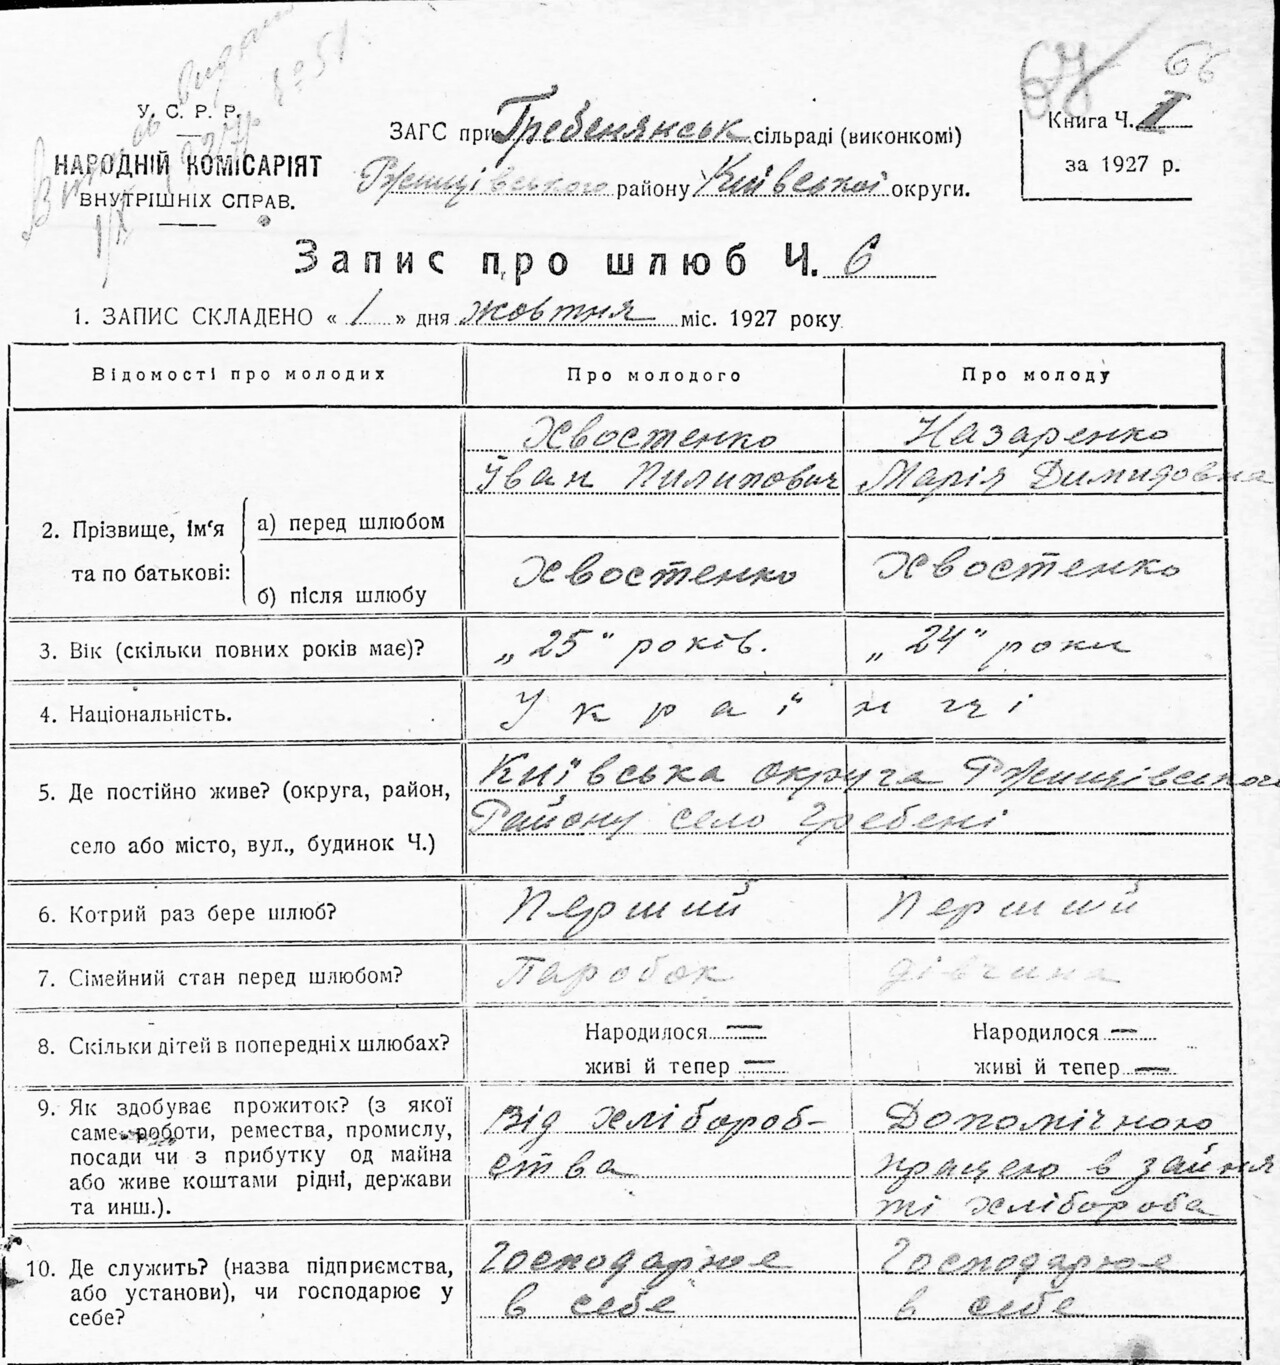 67 66
У. С. Р. Р.
НАРОДНІЙ КОМІСАРІЯТ
ВНУТРІШНІХ СПРАВ.
ЗАГС при Гребенянськ сільраді (виконкомі)
Ржищівського району Київської округи.
Книга Ч. I
за 1927 р.
Запис про шлюб Ч. 6
1. ЗАПИС СКЛАДЕНО « 1 » дня жовтня міс. 1927 року
Відомості про молодих Про молодого Про молоду
2. Прізвище, ім‘я та по батькові:
а) перед шлюбом
Хвостенко
Іван Пилипович
Назаренко
Марія Димидовна
б) після шлюбу
Хвостенко Хвостенко
3. Вік (скільки повних років має)? „25“ років. „24“ роки
4. Національність. Українці
5. Де постійно живе? (округа, район,
село або місто, вул., будинок Ч.)
Київська округа Ржищівського
Району село Гребені
6. Котрий раз бере шлюб? Перший Перший
7. Сімейний стан перед шлюбом? Паробок дівчина
8. Скільки дітей в попередніх шлюбах?
Народилося — Народилося —
живі й тепер — живі й тепер —
9. Як здобуває прожиток? (з якої
саме роботи, ремества, промислу,
посади чи з прибутку од майна
або живе коштами рідні, держави
та инш.).
Від хлібороб-
ства
Допомічною
працею в зайня
ті хлібороба
10. Де служить? (назва підприємства,
або установи), чи господарює у
себе?
Господарює
в себе
Господарює
в себе